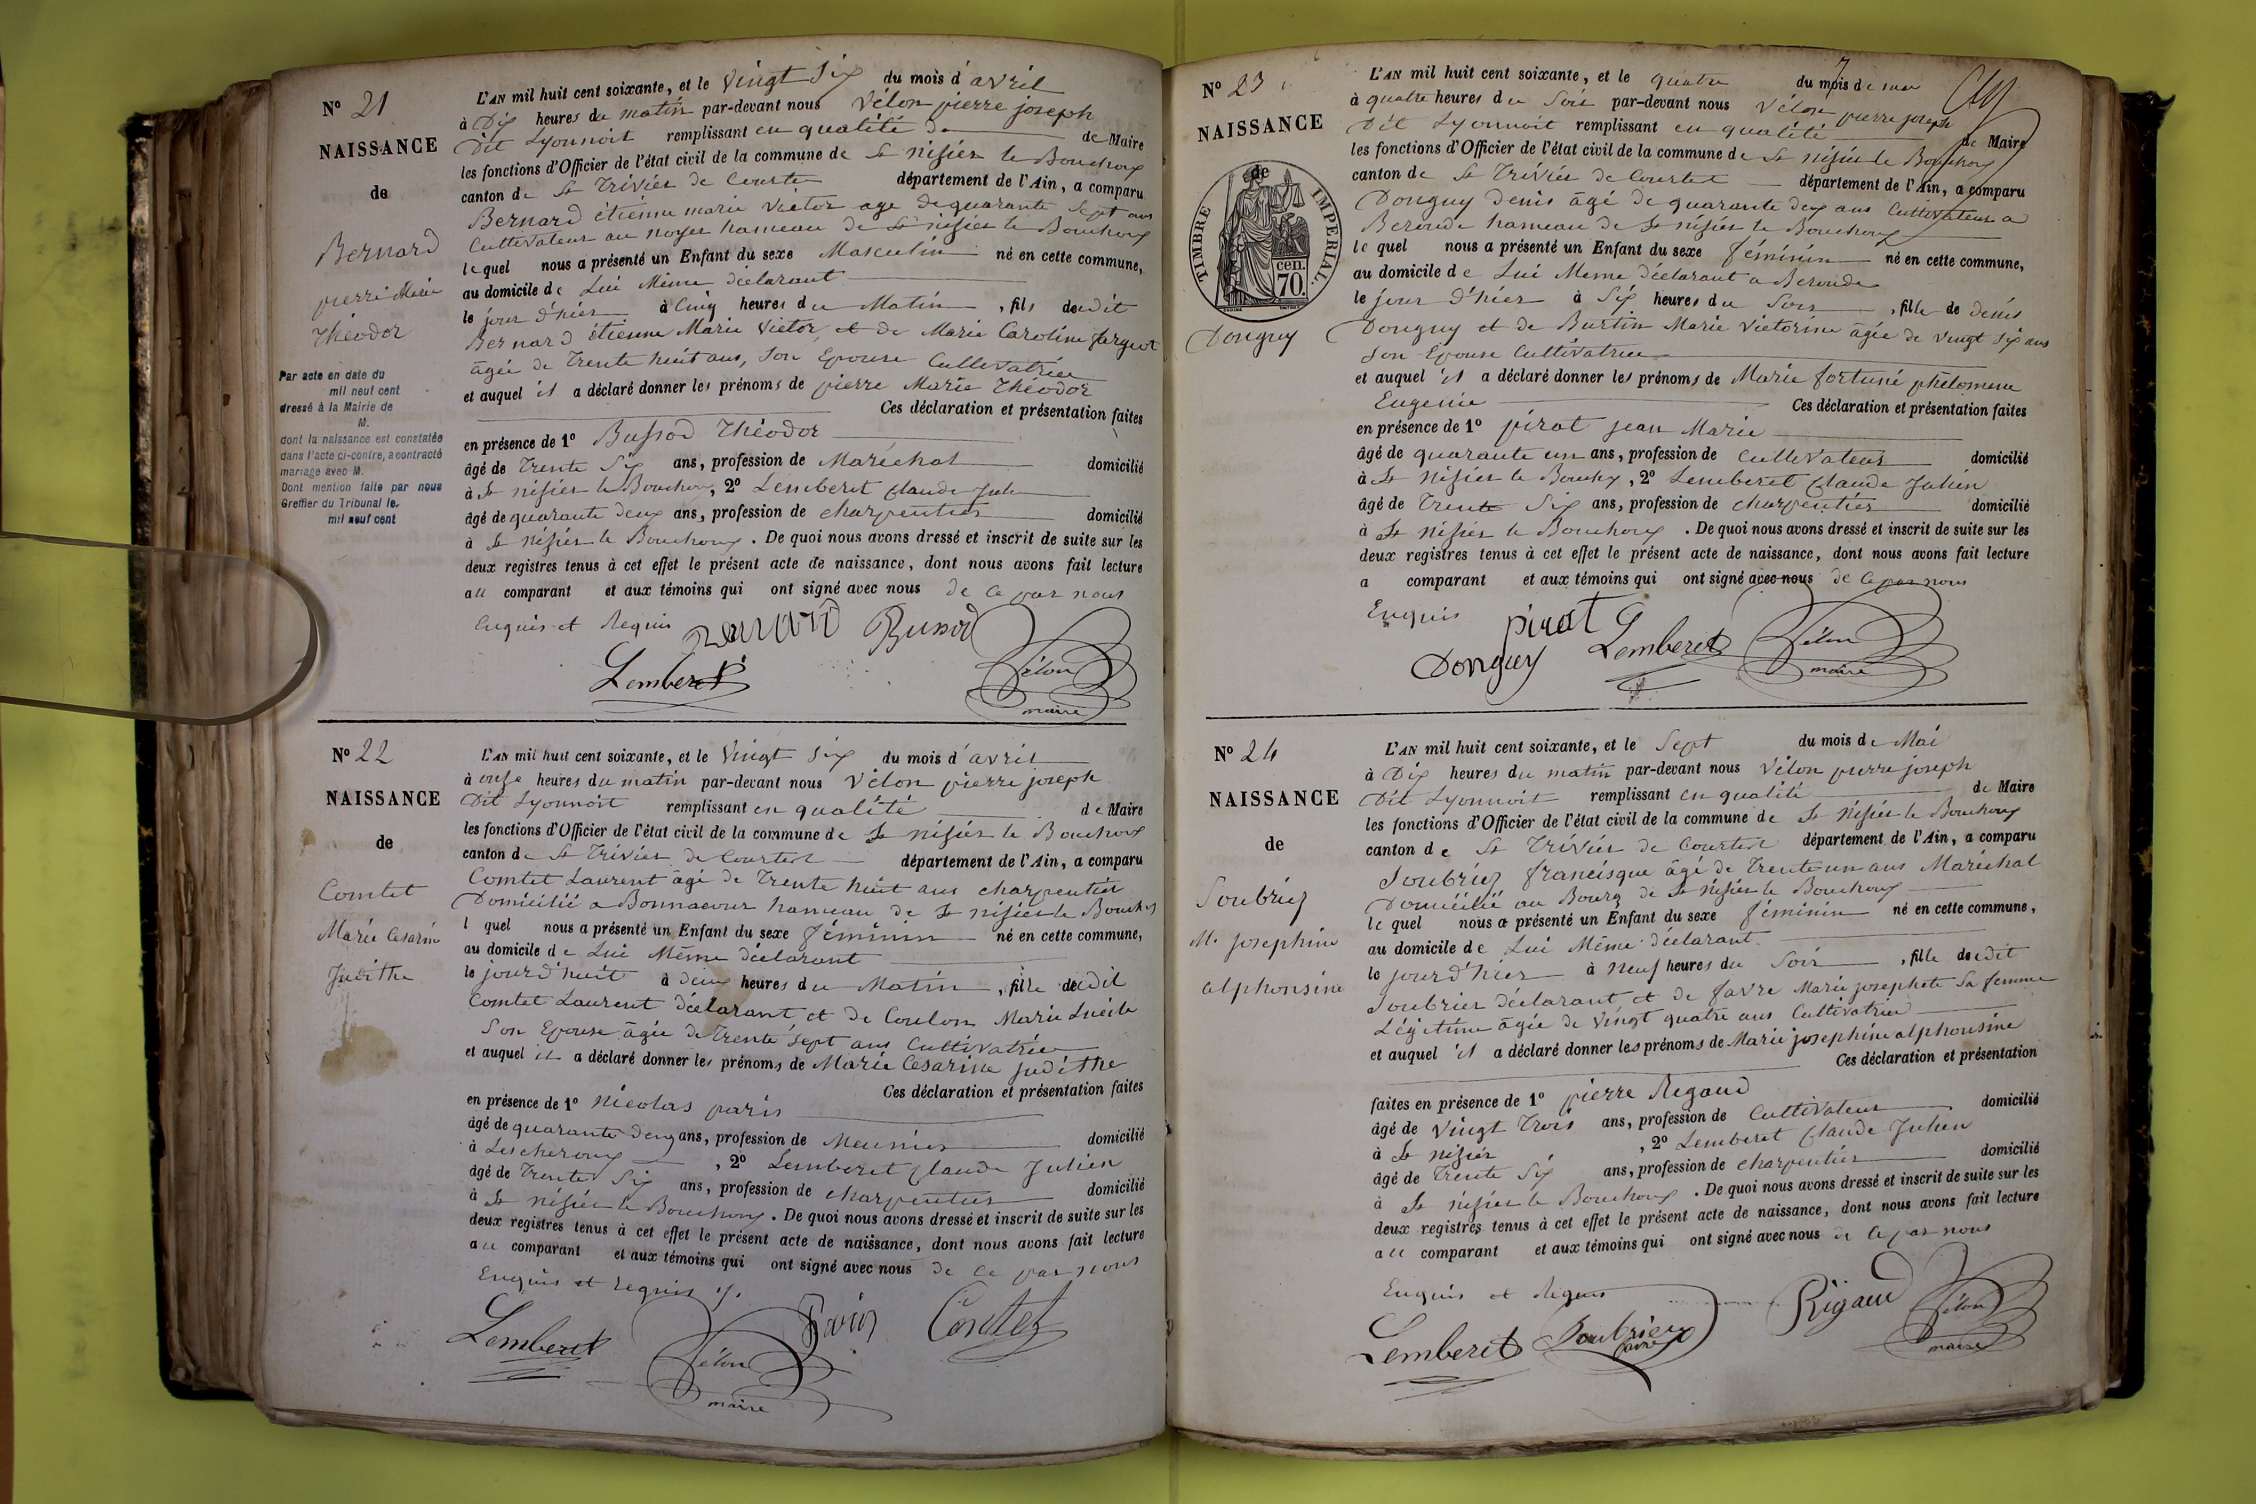 N° 21
NAISSANCE
de
Bernard
pierre Marie
Théodor
Par acte en date du
mil neuf cent
dressé à la Mairie de
M.
dont la naissance est constatée
dans l'acte ci-contre, a contracté
mariage avec M.
Dont mention faite par nous
Greffier du Tribunal le
mil neuf cent
L'AN mil huit cent soixante, et le vingt six du mois d'avril
à Dix heures du matin par-devant nous Vélon pierre joseph
Dit Lyonnoit remplissant en qualité de de Maire
les fonctions d'Officier de l'état civil de la commune de St nisier le Bouchoux
canton de St Trivier de Courte département de l'Ain, a comparu
Bernard étienne marie victor age de quarante sept ans
Cultivateur au noyer hameau de St nisier le Bouchoux
lequel nous a présenté un Enfant du sexe Masculin né en cette commune,
au domicile de Lui Même déclarant
le jour d'hier à Cinq heures du Matin, fils dudit
Bernard étienne Marie Victor et de Marie Caroline
âgée de Trente huit ans, Son Epouse Cultivatrice
et auquel il a déclaré donner les prénoms de pierre Marie Théodor
Ces déclaration et présentation faites
en présence de 1° Bussod Théodor
âgé de Trente Six ans, profession de Maréchal domicilié
à St nisier le Bouchoux, 2° Lemberet Claude
âgé de quarante deux ans, profession de charpentier domicilié
à St nisier le Bouchoux. De quoi nous avons dressé et inscrit de suite sur les
deux registres tenus à cet effet le présent acte de naissance, dont nous avons fait lecture
au comparant et aux témoins qui ont signé avec nous de ce par nous
Enquis et Requis Bernard Bussod
Lemberet Vélon
maire
N° 22
NAISSANCE
de
Comtet
Marie Cesarine
Judithe
L'AN mil huit cent soixante, et le Vingt Six du mois d'avril
à onze heures du matin par-devant nous Vélon pierre joseph
Dit Lyonnoit remplissant en qualité de Maire
les fonctions d'Officier de l'état civil de la commune de St nisier le Bouchoux
canton de St Trivier de Courtest département de l'Ain, a comparu
Comtet Laurent âgé de Trente huit ans charpentier
Domicilié a Bonnacour hameau de St nisier le Bouchoux
l quel nous a présenté un Enfant du sexe féminin né en cette commune,
au domicile de Lui Même déclarant
le jourd'huit à deux heures du Matin, fille dudit
Comtet Laurent déclarant et de Coulon Marie Lucile
Son Epouse âgée de Trente sept ans Cultivatrice
et auquel il a déclaré donner les prénoms de Marie Cesarine judithe
Ces déclaration et présentation faites
en présence de 1° nicolas paris
âgé de quarante deux ans, profession de Meunier domicilié
à Lescheroux, 2° Lemberet Claude Julien
âgé de Trente Six ans, profession de charpentier domicilié
à St nisier le Bouchoux. De quoi nous avons dressé et inscrit de suite sur les
deux registres tenus à cet effet le présent acte de naissance, dont nous avons fait lecture
au comparant et aux témoins qui ont signé avec nous de ce par nous
Enquis et requis
Lemberet Vélon Paris Comtet
maire
N° 23
NAISSANCE
de
TIMBRE IMPERIAL
70 cen.
Donguy
L'AN mil huit cent soixante, et le quatre du mois de mai
à quatre heures du Soir par-devant nous Vélon pierre joseph
Dit Lyonnoit remplissant en qualité de Maire
les fonctions d'Officier de l'état civil de la commune de St nisier le Bouchoux
canton de St Trivier de Courtest département de l'Ain, a comparu
Donguy denis âgé de quarante deux ans Cultivateur a
Beronde hameau de St nisier le Bouchoux
le quel nous a présenté un Enfant du sexe féminin né en cette commune,
au domicile de Lui Meme déclarant a Beronde
le jour d'hier à Six heures du Soir, fille de denis
Donguy et de Burtin Marie Victorine âgée de vingt six ans
Son Epouse Cultivatrice
et auquel il a déclaré donner les prénoms de Marie fortuné philomene
Eugenie Ces déclaration et présentation faites
en présence de 1° pirat jean Marie
âgé de quarante un ans, profession de Cultivateur domicilié
à St nisier le Bouchx, 2° Lemberet Claude Julien
âgé de Trente Six ans, profession de charpentier domicilié
à St nisier le Bouchoux. De quoi nous avons dressé et inscrit de suite sur les
deux registres tenus à cet effet le présent acte de naissance, dont nous avons fait lecture
a comparant et aux témoins qui ont signé avec nous de ce par nous
Enquis pirat
Donguy Lemberet Vélon
maire
N° 24
NAISSANCE
de
Soubriez
M. josephine
alphonsine
L'AN mil huit cent soixante, et le Sept du mois de Mai
à Dix heures du matin par-devant nous Vélon pierre joseph
Dit Lyonnoit remplissant en qualité de Maire
les fonctions d'Officier de l'état civil de la commune de St nisier le Bouchoux
canton de St Trivier de Courtest département de l'Ain, a comparu
Soubriez francisque âgé de Trente un ans Maréchal
Domicilié au Bourg de St nisier le Bouchoux
le quel nous a présenté un Enfant du sexe féminin né en cette commune,
au domicile de Lui Même déclarant
le jour d'hier à neuf heures du Soir, fille dudit
Soubrier déclarant et de favre Marie josephete Sa femme
Légitime âgée de Vingt quatre ans Cultivatrice
et auquel il a déclaré donner les prénoms de Marie josephine alphonsine
Ces déclaration et présentation
faites en présence de 1° pierre Rigaud
âgé de Vingt Trois ans, profession de Cultivateur domicilié
à St nisier, 2° Lemberet Claude Julien
âgé de Trente Six ans, profession de charpentier domicilié
à St nisier le Bouchoux. De quoi nous avons dressé et inscrit de suite sur les
deux registres tenus à cet effet le présent acte de naissance, dont nous avons fait lecture
au comparant et aux témoins qui ont signé avec nous de ce par nous
Enquis et Requis Rigaud Vélon
Lemberet Soubrier maire